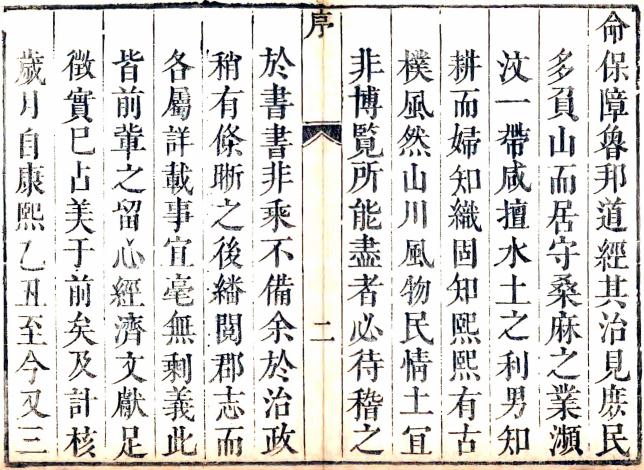 命保障魯邦道經其治見庶民
多負山而居守桑麻之業瀕
汶一帶咸擅水土之利男知
耕而婦知織固知熙熙有古
樸風然山川風物民情土宜
非博覽所能盡者必待稽之
序 二
於書書非乘不備余於治政
稍有條晰之後繙閱郡志而
各屬詳載事宜毫無剩義此
皆前輩之留心經濟文獻足
徵實已占美于前矣及計核
歲月自康熙乙丑至今又三